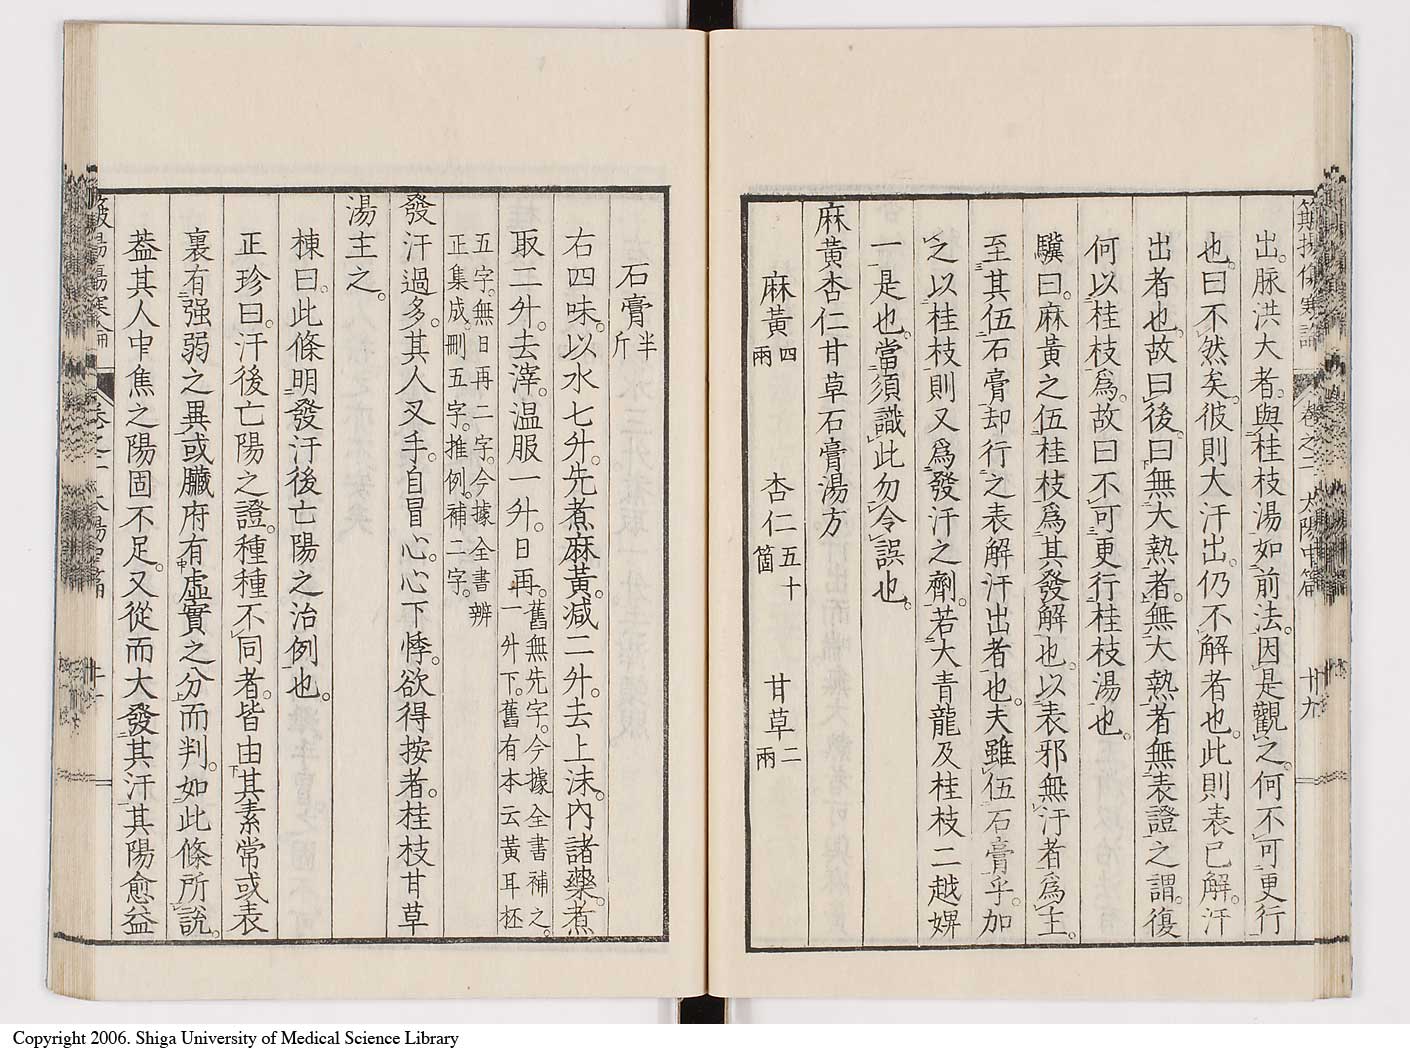 出。脉洪大者。與桂枝湯如前法。因是觀之。何不可更行
也。曰。不然矣。彼則大汗出。仍不解者也。此則表已解。汗
出者也。故曰後。曰無大熱者。無大熱者無表證之謂。復
何以桂枝爲。故曰不可更行桂枝湯也。
驥曰。麻黃之伍桂枝。爲其發解也。以表邪無汗者爲主。
至其伍石膏。却行之表解汗出者也。夫雖伍石膏乎。加
之以桂枝。則又爲發汗之劑。若大青龍及桂枝二越婢
一是也。當須識此勿令誤也。
麻黃杏仁甘草石膏湯方
麻黃四兩 杏仁五十箇 甘草二兩
石膏半斤
右四味。以水七升。先煮麻黃。減二升。去上沫。內諸藥。煮
取二升。去滓。溫服一升。日再。舊無先字。今據全書補之。一升下。舊有本云黃耳柸
五字。無日再二字。今據全書辨正集成。刪五字。推例。補二字。
發汗過多。其人叉手自冒心。心下悸。欲得按者。桂枝甘草
湯主之。
棟曰。此條明發汗後亡陽之治例也。
正珍曰。汗後亡陽之證。種種不同者。皆由其素常或表
裏有强弱之異。或臟府有虛實之分而判。如此條所說。
葢其人中焦之陽固不足。又從而大發其汗。其陽愈益